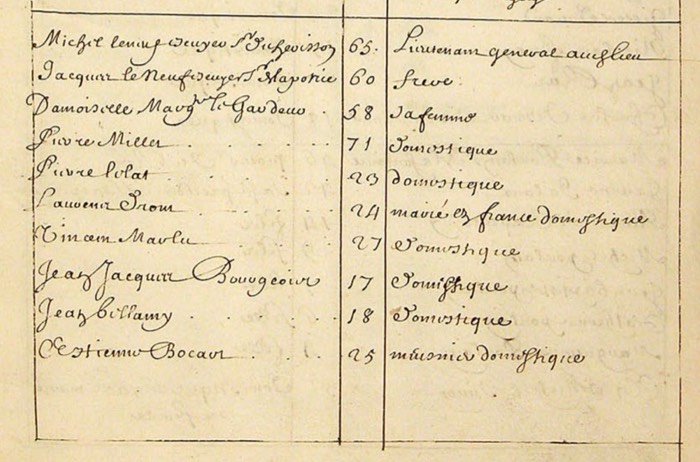 Michel leneuf Escuyer Sr du herisson 65. Lieutenant general audt lieu
Jacques le Neuf Escuyer Sr de la poterie 60 frere
Damoiselle Margte le Gardeur 58 sa femme
Pierre Millet 71 Domestique
Pierre Colat 23 domestique
Laurens 24 marié en france domestique
Vincem Marlu 27 Domestique
Jean Jacques Bourgeois 17 Domistique
Jean billamy 18 Domestique
Estienne Bocart 25 meusnier domestique